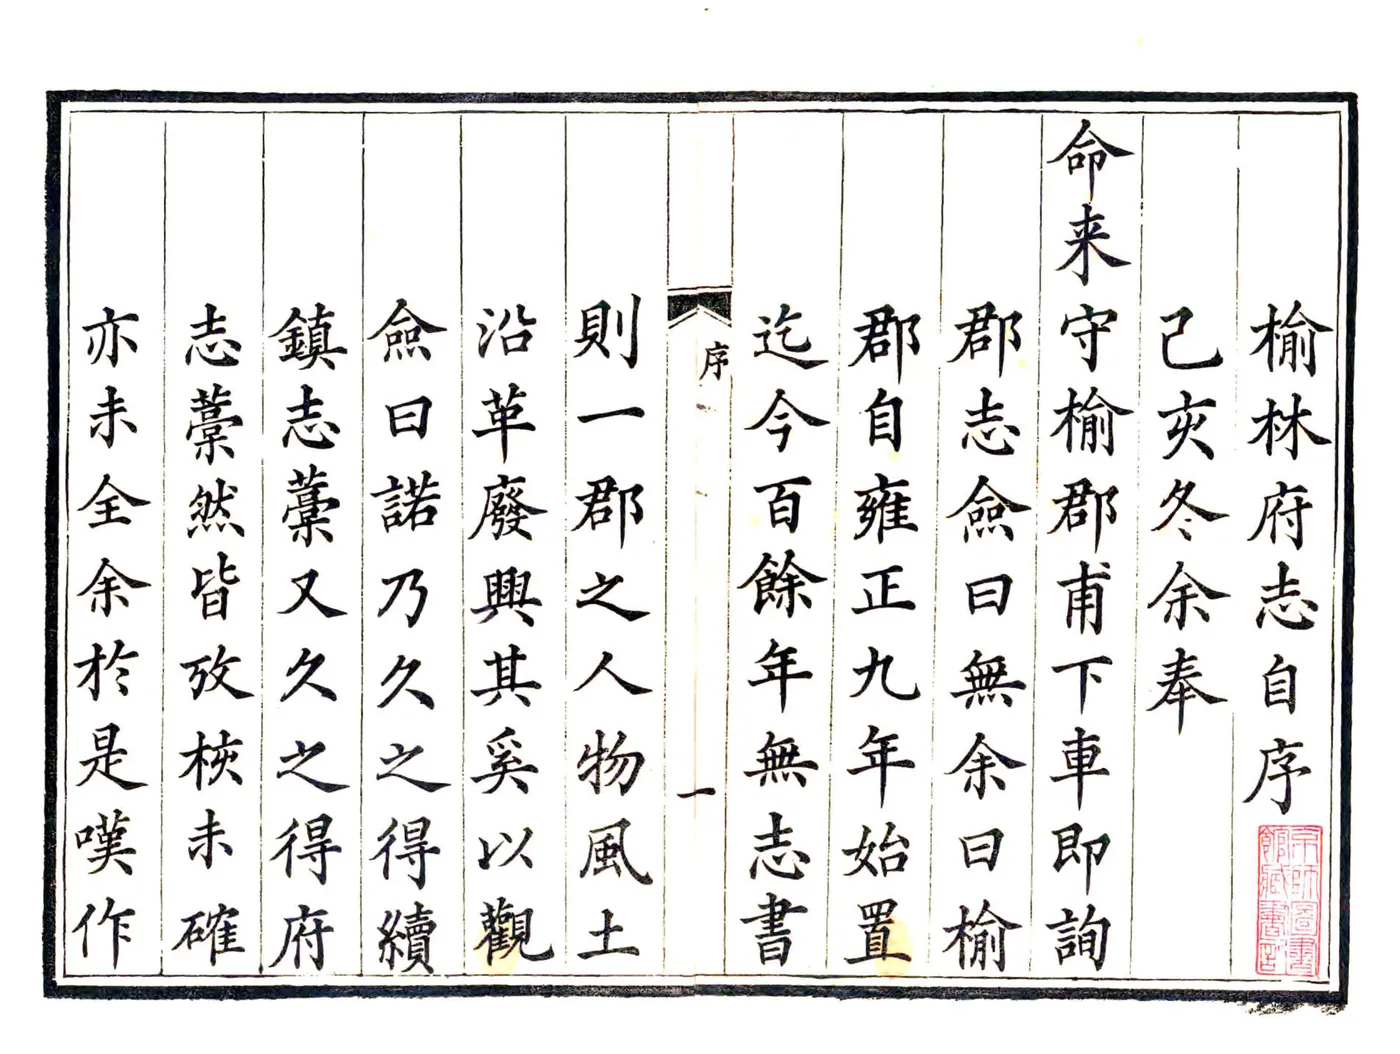 榆林府志自序
己亥冬余奉
命来守榆郡甫下車即詢
郡志僉曰無余曰榆
郡自雍正九年始置
迄今百餘年無志書
序
一
則一郡之人物風土
沿革廢興其奚以觀
僉曰諾乃久之得續
鎮志藁又久之得府
志藁然皆攷核未確
亦未全余於是嘆作
京師圖書
館藏書記